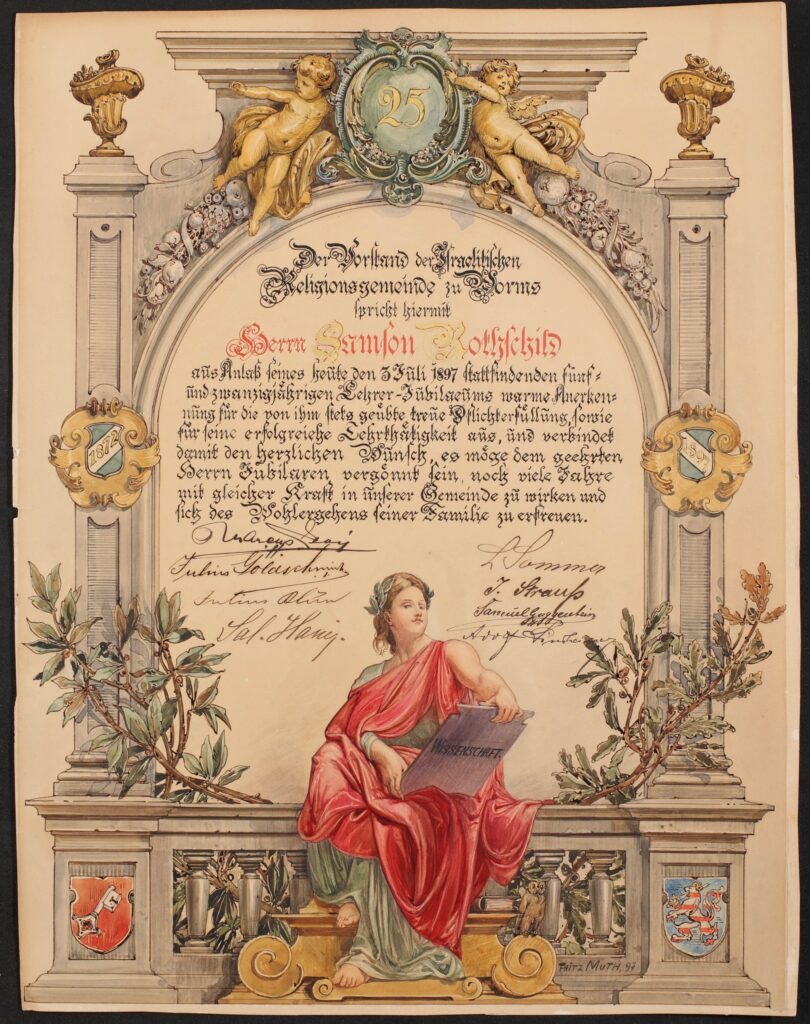 25
Der Vorstand der Israelitischen
Religionsgemeinde zu Worms
spricht hiermit
Herrn Samson Rothschild
aus Anlaß seines heute den 3 Juli 1897 stattfindenden fünf-
und zwanzigjährigen Lehrer-Jubilaeums warme Anerken-
nung für die von ihm stets geübte treue Pflichterfüllung, sowie
für seine erfolgreiche Lehrthätigkeit aus, und verbindet
damit den herzlichen Wunsch, es möge dem geehrten
Herrn Jubilaren vergönnt sein, noch viele Jahre
mit gleicher Kraft in unserer Gemeinde zu wirken und
sich des Wohlergehens seiner Familie zu erfreuen.
1872
Julius Goldschmidt
Julius
Sal.
L Sommer
J. Strauß
Samuel
Adolf
WISSENSCHAFT.
FRITZ MUTH, 97